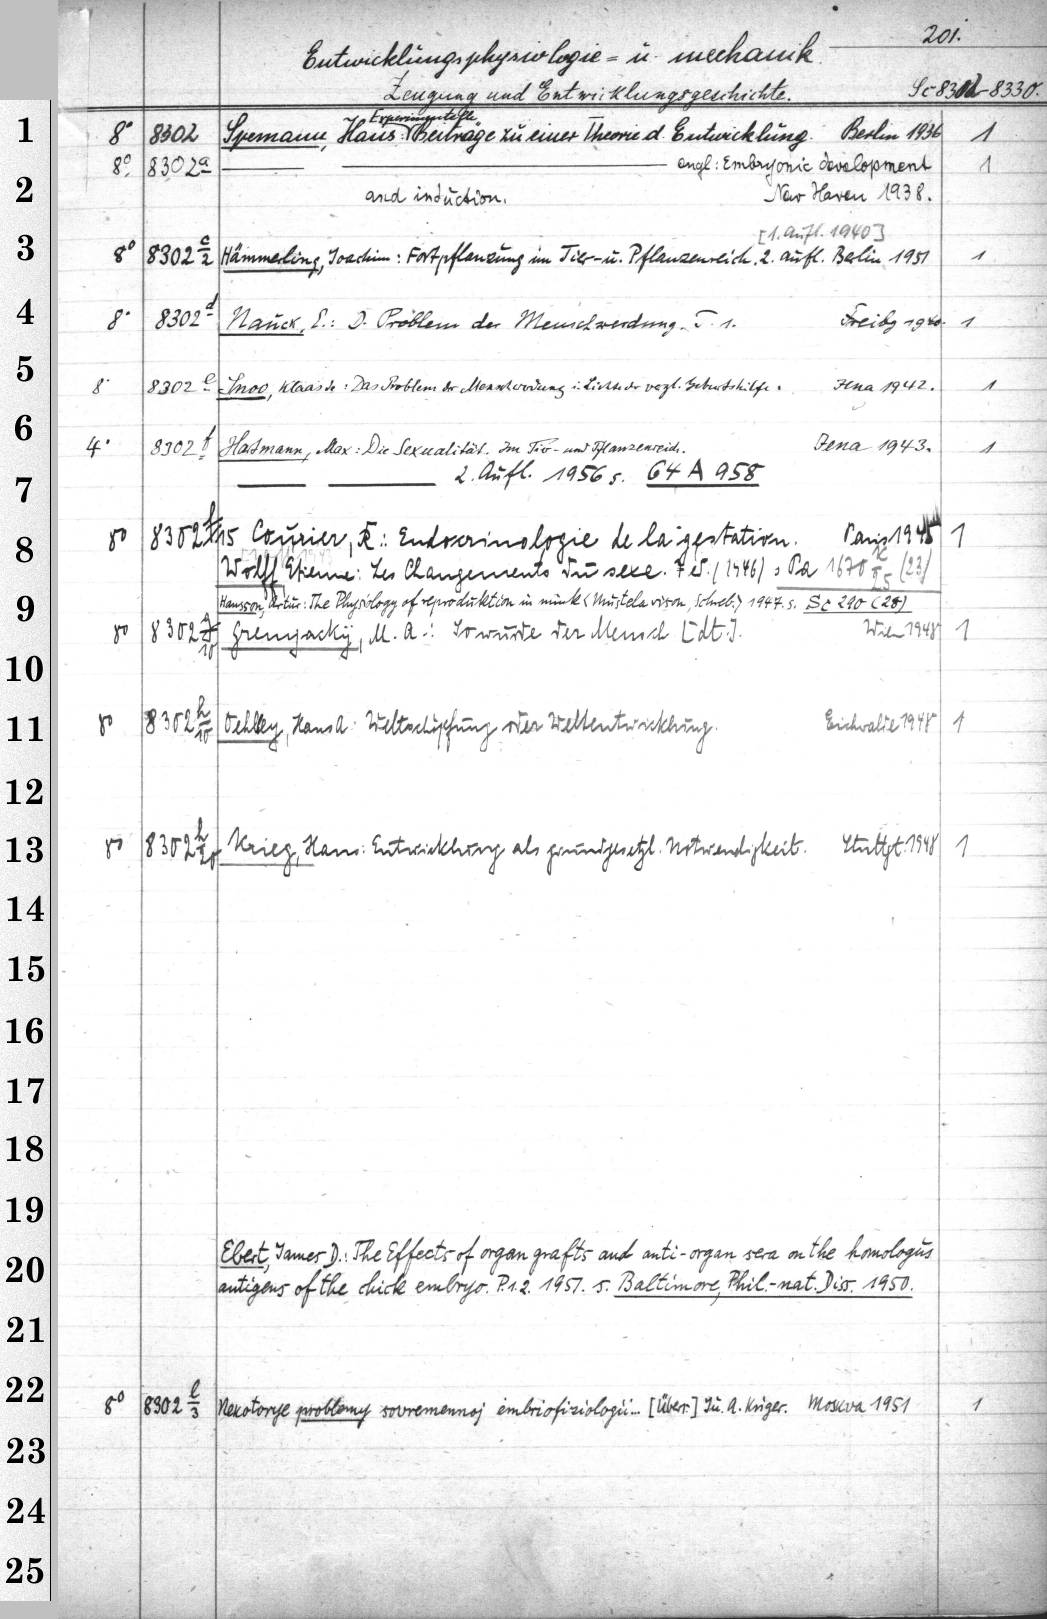 201.
Entwicklungsphysiologie = u. mechanik.
Zeugung und Entwicklungsgeschichte. Sc 8302-8330.
Experimentelle
1 8° 8302 Spemann, Hans: Beiträge zu einer Theorie d. Entwicklung. Berlin 1936 1
8° 8302 a engl: Embryonic development 1
2 and induction. New Haven 1938.
[1. Aufl. 1940]
3 8° 8302 c/2 Hämmerling, Joachim: Fortpflanzung im Tier- u. Pflanzenreich. 2. Aufl. Berlin 1951 1
4 8° 8302 d Nauck, E.: D. Problem der Menschwerdung. T. 1. Freibg 1940. 1
5 8° 8302 e Snoo, Klaas de: Das Problem der Menschwerdung i. Lichte der vergl. Geburtshilfe. Jena 1942. 1
6 4° 8302 f Hartmann, Max: Die Sexualität. Im Tier- und Pflanzenreich. Jena 1943. 1
7 2. Aufl. 1956 s. 64 A 958
8 8° 8302 f/15 Courrier, R.: Endocrinologie de la gestation. Paris 1945 1
Wolff Etienne: Les Changements du sexe. 7 éd. (1946) s Pa 1670 (23)
9 Hansson, Artur: The Physiology of reproduktion in mink (Mustela vison, Schreb.) 1947. s. Sc 290 (28)
8° 8302 g/10 Gremjackij, M. A.: So wurde der Mensch [dt.]. Wien 1948 1
10
11 8° 8302 h/10 Oehlkey, Hans A: Weltschöpfung oder Weltentwicklung. Eichwalde 1948 1
12
13 8° 8302 h/20 Krieg, Hans: Entwicklung als grundgesetzl. Notwendigkeit. Stuttgt. 1948 1
14
15
16
17
18
19
Ebert, James D.: The Effects of organ grafts and anti-organ sera on the homologus
20 antigens of the chick embryo. P. 1.2. 1951. s. Baltimore, Phil.-nat. Diss. 1950.
21
22 8° 8302 l/3 Nekotorye problemy sovremennoj embriofiziologii... [Übers.] Ju. A. Kriger. Moskva 1951 1
23
24
25